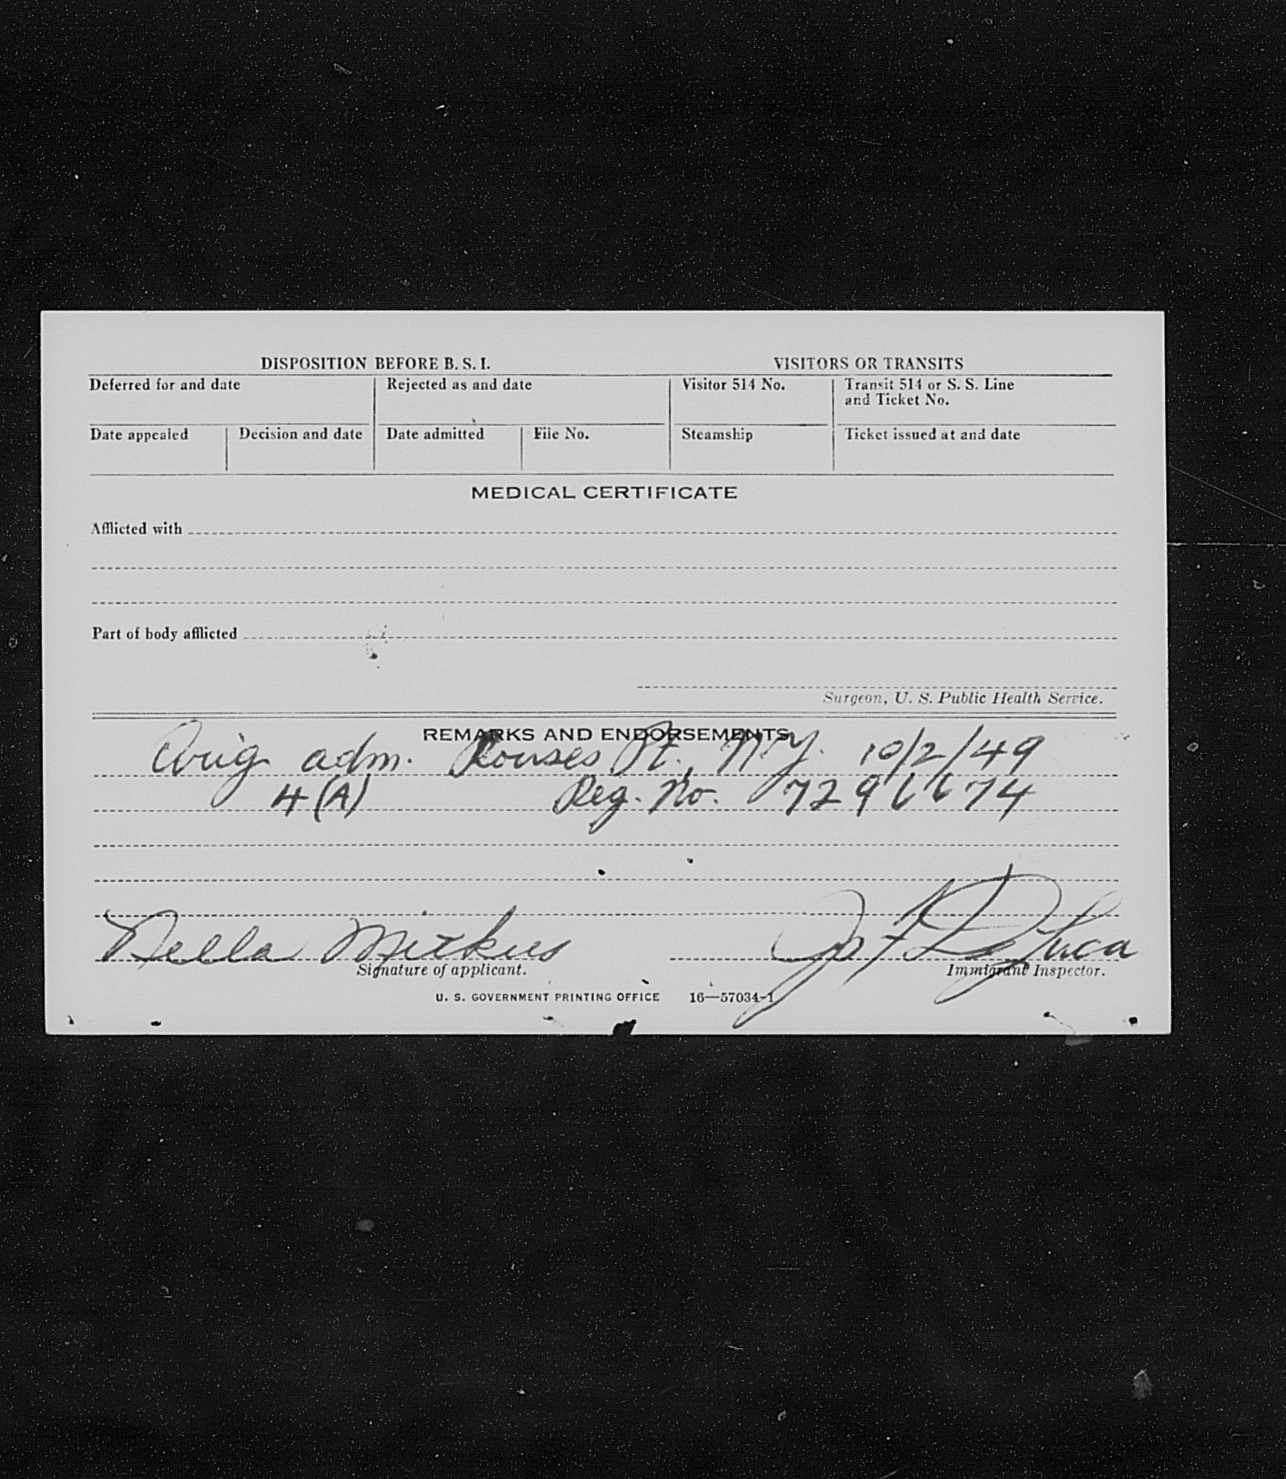 DISPOSITION BEFORE B. S. I. VISITORS OR TRANSITS
Deferred for and date Rejected as and date Visitor 514 No. Transit 514 or S. S. Line
and Ticket No.
Date appealed Decision and date Date admitted File No. Steamship Ticket issued at and date
MEDICAL CERTIFICATE
Afflicted with
Part of body afflicted
Surgeon, U. S. Public Health Service.
REMARKS AND ENDORSEMENTS
Orig adm. Rouses Pt. N.Y. 10/2/49
4(A) Reg. No. 7296674
Nella Mitkus
Signature of applicant. Immigrant Inspector.
U. S. GOVERNMENT PRINTING OFFICE 16—57034-1